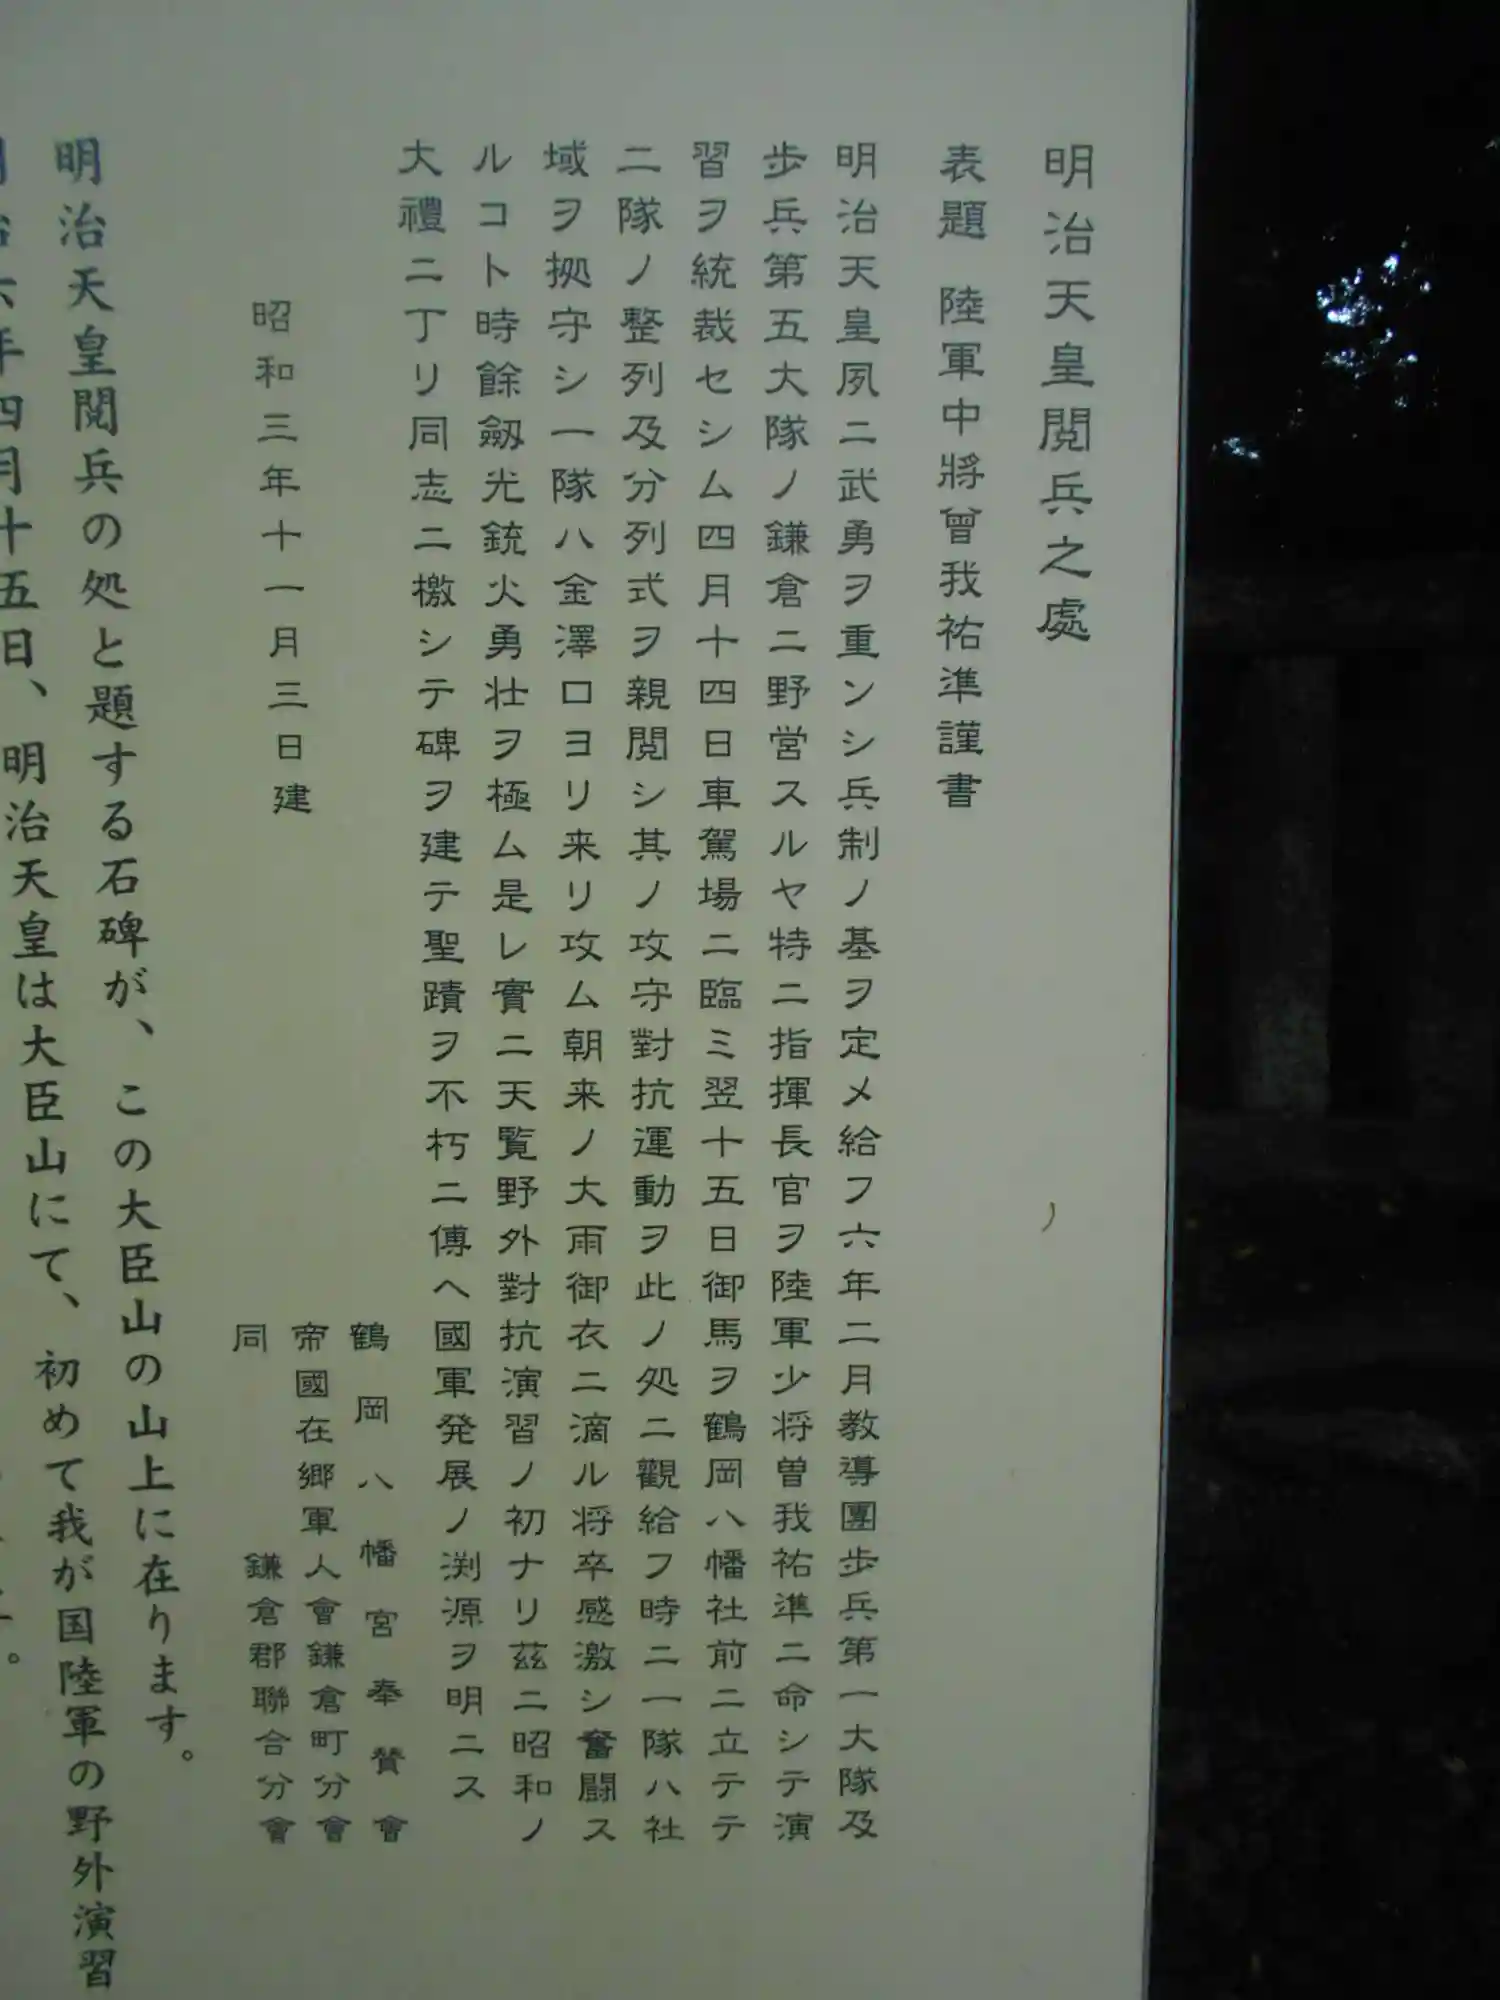 明治天皇閲兵之處
表題 陸軍中將曾我祐準謹書
明治天皇夙ニ武勇ヲ重ンシ兵制ノ基ヲ定メ給フ六年二月教導團歩兵第一大隊及
歩兵第五大隊ノ鎌倉ニ野営スルヤ特ニ指揮長官ヲ陸軍少将曽我祐準ニ命シテ演
習ヲ統裁セシム四月十四日車駕場ニ臨ミ翌十五日御馬ヲ鶴岡八幡社前ニ立テテ
二隊ノ整列及分列式ヲ親閲シ其ノ攻守對抗運動ヲ此ノ処ニ観給フ時ニ一隊ハ社
域ヲ拠守シ一隊ハ金澤口ヨリ来リ攻ム朝来ノ大雨御衣ニ滴ル将卒感激シ奮闘ス
ルコト時餘劔光銃火勇壮ヲ極ム是レ實ニ天覧野外對抗演習ノ初ナリ茲ニ昭和ノ
大禮ニ丁リ同志ニ檄シテ碑ヲ建テ聖蹟ヲ不朽ニ傳ヘ國軍発展ノ渕源ヲ明ニス
昭和三年十一月三日建
鶴岡八幡宮奉賛會
帝國在郷軍人會鎌倉町分會
同 鎌倉郡聯合分會
明治天皇閲兵の処と題する石碑が、この大臣山の山上に在ります。
明治六年四月十五日、明治天皇は大臣山にて、初めて我が国陸軍の野外演習